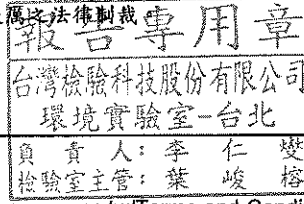 厲之法律制裁。
報告專用章
台灣檢驗科技股份有限公司
環境實驗室-台北
負責人：李仁燮
檢驗室主管：葉峻榕